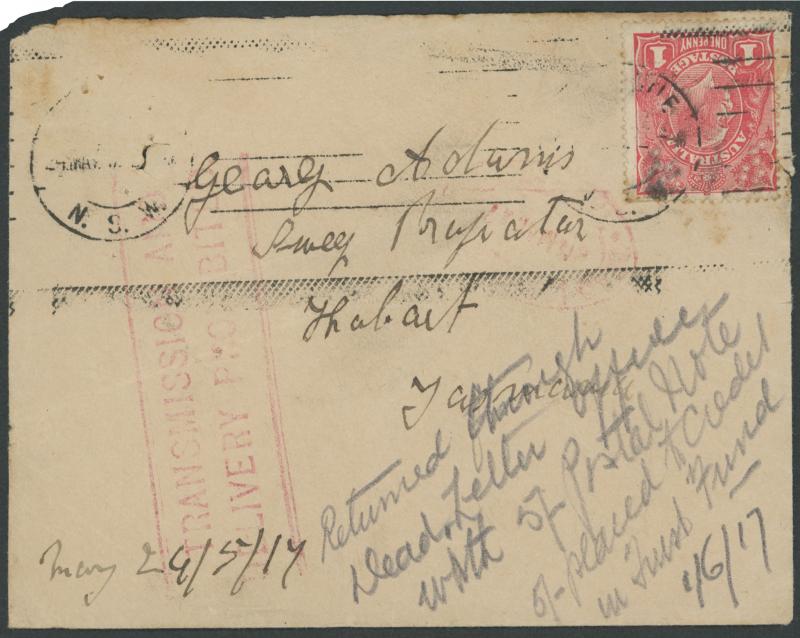 1 POSTAGE 1
ONE PENNY
AUSTRALIA
MAY 5
N. S. W.
Georg Adams
Sweep Proprietor
Hobart
Tasmania
TRANSMISSION AND
DELIVERY PROHIBIT
Returned through
Dead Letter Office
with 5/- Postal Note
5/- placed to Credit
in Trust Fund
1/6/17
May 24/5/17